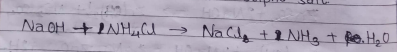 NaOH + NH4Cl → NaCl + NH3 + H2O